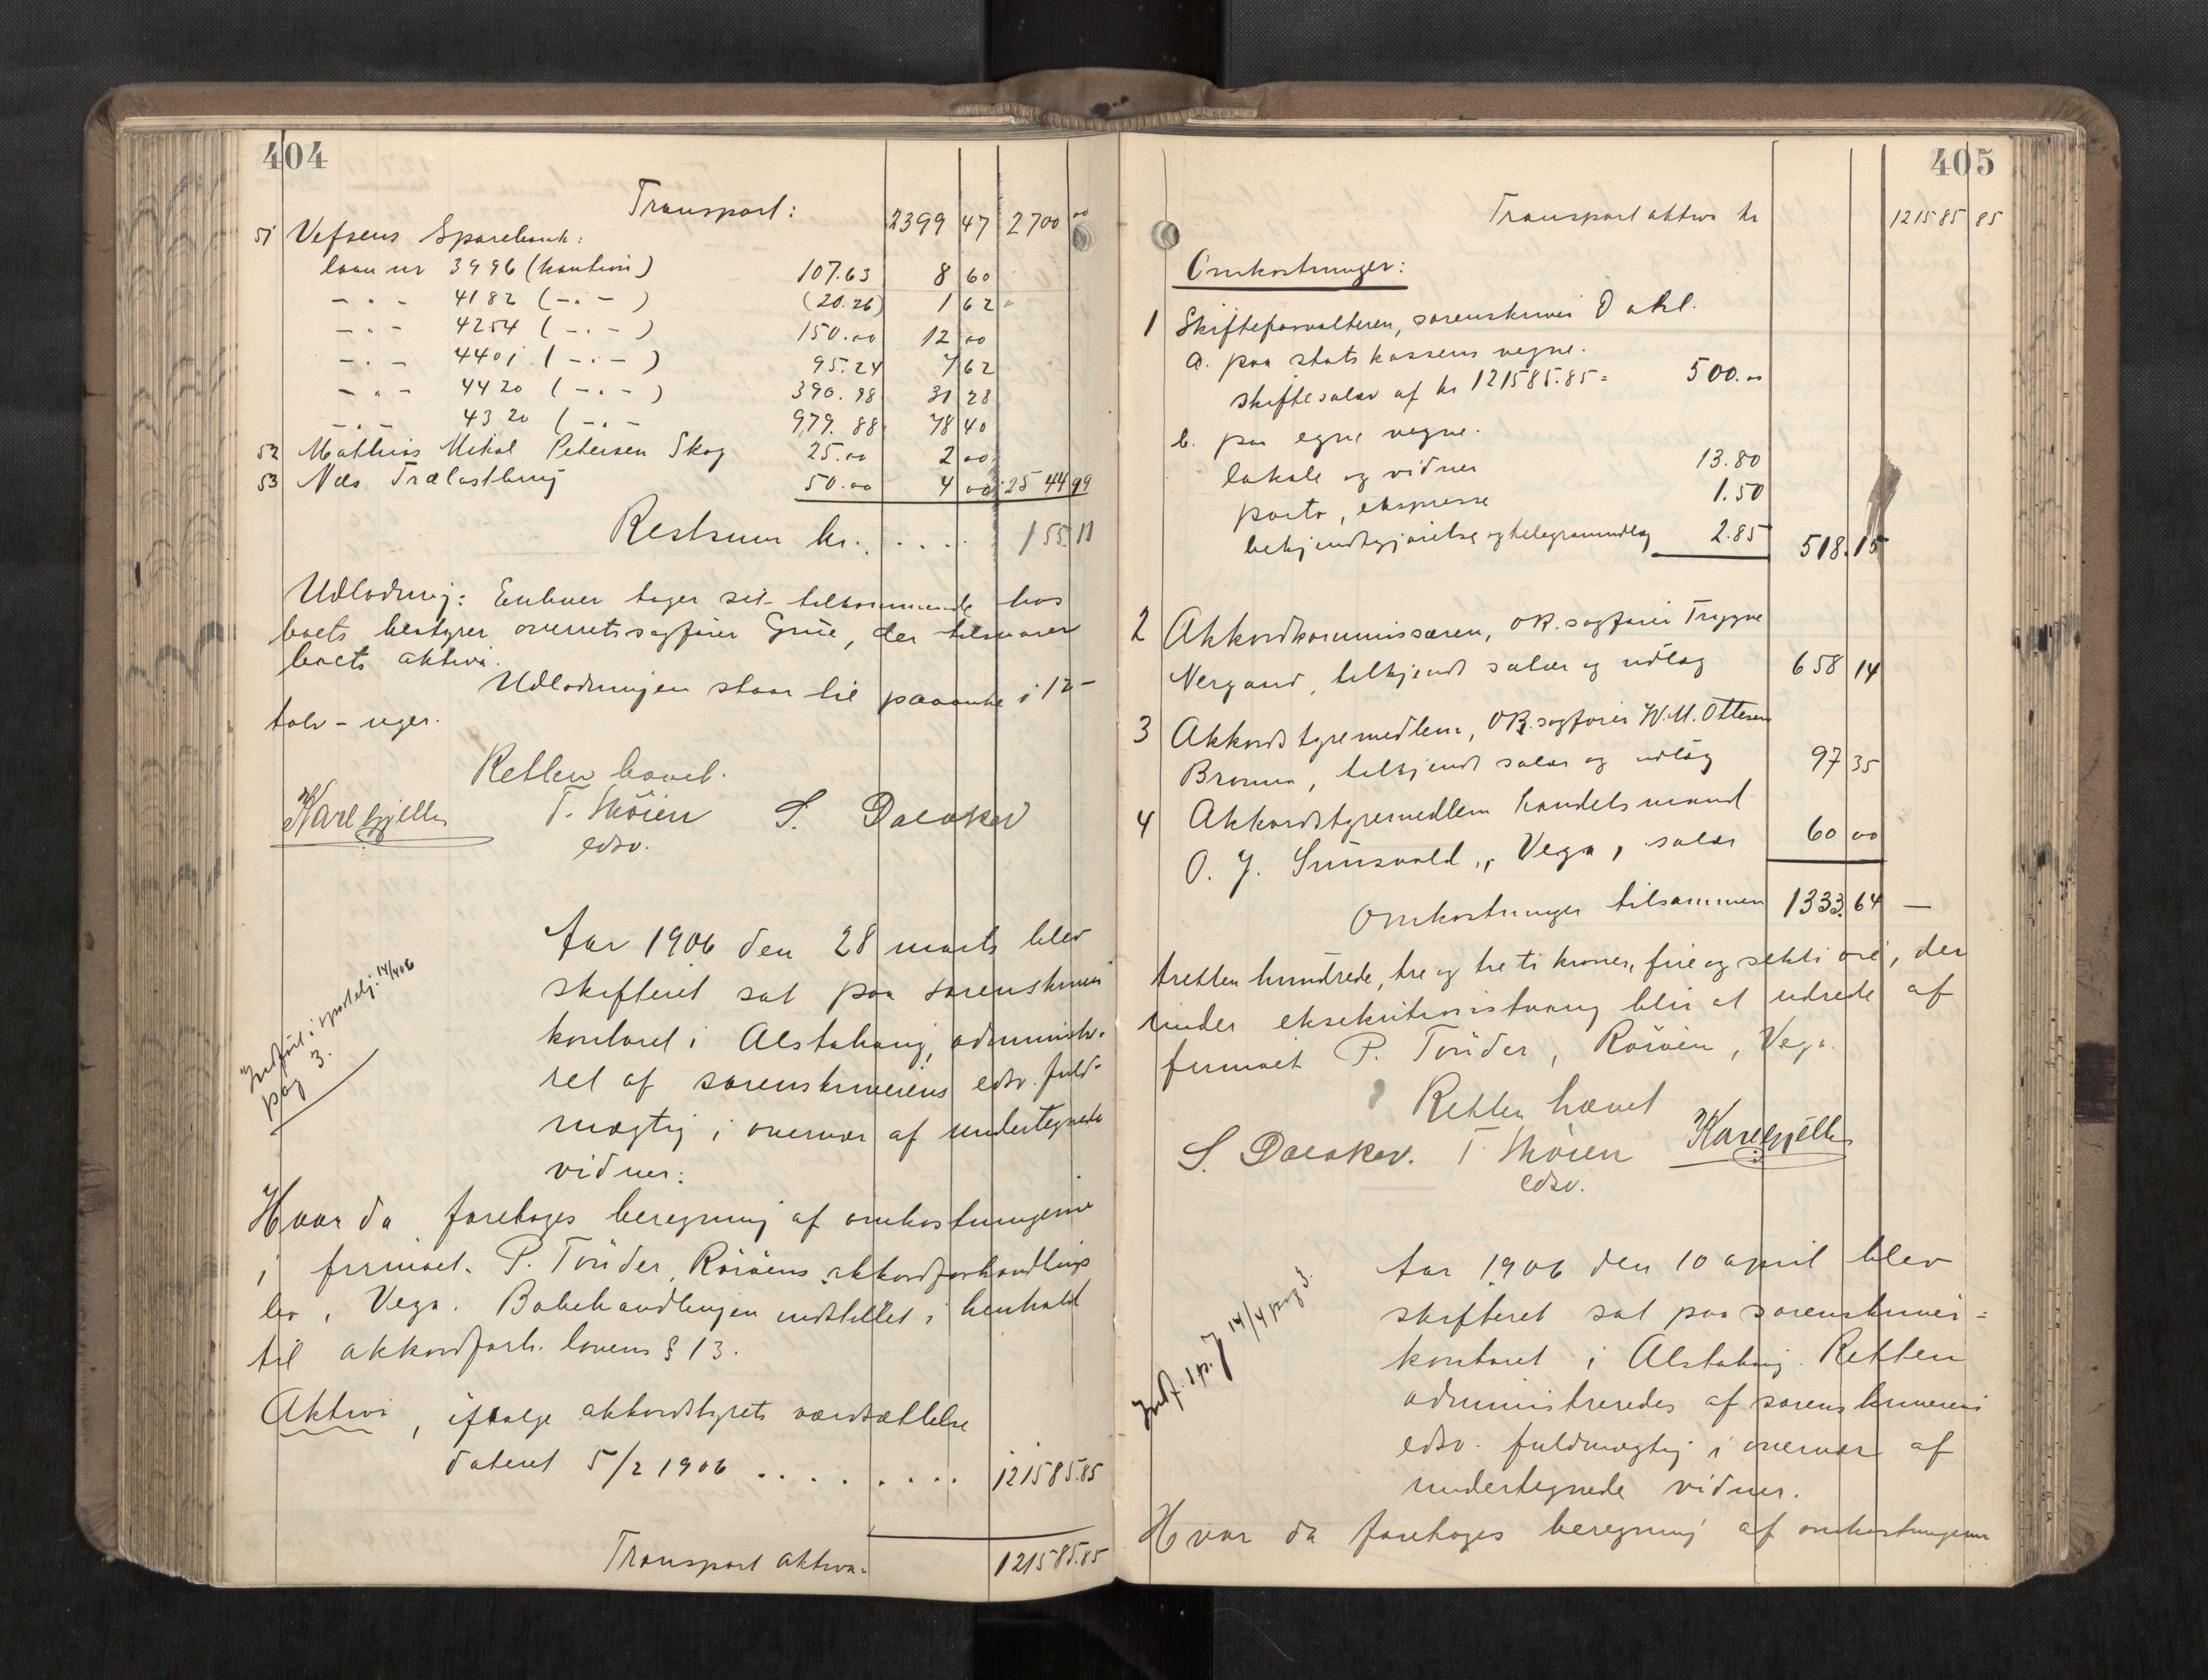 404
Transport: 2399 47 2700 00
51 Vefsens Sparebank:
laan nr 3996 (kaution) 107.63 8 60
- " - 4182 ( - " - ) (20.26) 1 62
- " - 4254 ( - " - ) 150.00 12 00
- " - 4401 ( - " - ) 95.24 7 62
- " - 4420 ( - " - ) 390.98 31 28
- " - 4320 ( - " - 979.88 78 40
52 Mathias Mikal Petersen Skog 25.00 2 00
53 Næs Trælastbrug 50.00 4 00 2544 99
Restsum kr. . . . . 155 11
Udlodning: Enhver tager sit tilkommende hos
boets bestyrer overretssagfører Grüe, der tilsvarer
boets aktiva.
Udlodningen staar til paaanke i 12 -
tolv - uger.
Retten hævet.
Karl Gjelle T. Skøien S. Dalaker
edsv.
Aar 1906 den 28 marts blev
skifteret sat paa sorenskriver
kontoret i Alstahaug, administre-
ret af sorenskriverens edsv. fuld-
mægtig i overvær af undertegnede
vidner:
Indført i sportelj. 14/4 06
pag 3.
Hvor da foretoges beregning af omkostningerne
i firmaet P. Tønder, Rörøens akkordforhandlings
bo, Vega. Bobehandlingen indstillet i henhold
til akkordforh. lovens § 13.
Aktiva, ifølge akkordstyrets værdsættelse
dateret 5/2 1906 . . . . . . . . 121585.85
Transport aktiva. 121585.85
405
Transport aktiva kr 121585 85
Omkostninger:
1 Skifteforvalteren, sorenskriver Dahl.
a. paa statskassens vegne.
skiftesalær af kr 121585.85 = 500.00
b. paa egne vegne.
lokale og vidner 13.80
porto, ekspresse 1.50
bekjendtgjørelse og telegramudlæg 2.85 518.15
2 Akkordkommissæren, OR. sagfører Trygve
Nergaard, tilkjendt salær og udlæg 658 14
3 Akkordstyremedlem, OR. sagfører W. M. Ottesen
Brønnø, tilkjendt salær og udlæg 97 35
4 Akkordstyremedlem handelsmand
O. J. Grinsvold, Vega, salær 60 00
Omkostninger tilsammen 1333.64 —
tretten hundrede, tre og tre ti kroner, fire og seksti øre, der
under eksekutionstvang blir at udrede af
firmaet P. Tønder, Rörøen, Vega.
Retten hævet
S. Dalaker. T. Skøien Karl Gjelle
edsv.
Aar 1906 den 10 april blev
skifteret sat paa sorenskriver=
kontoret i Alstahaug. Retten
administreredes af sorenskriverens
edsv. fuldmægtig i overvær af
undertegnede vidner.
Indf. i sp. J 14/4 pag 3.
Hvor da foretoges beregning af omkostningerne